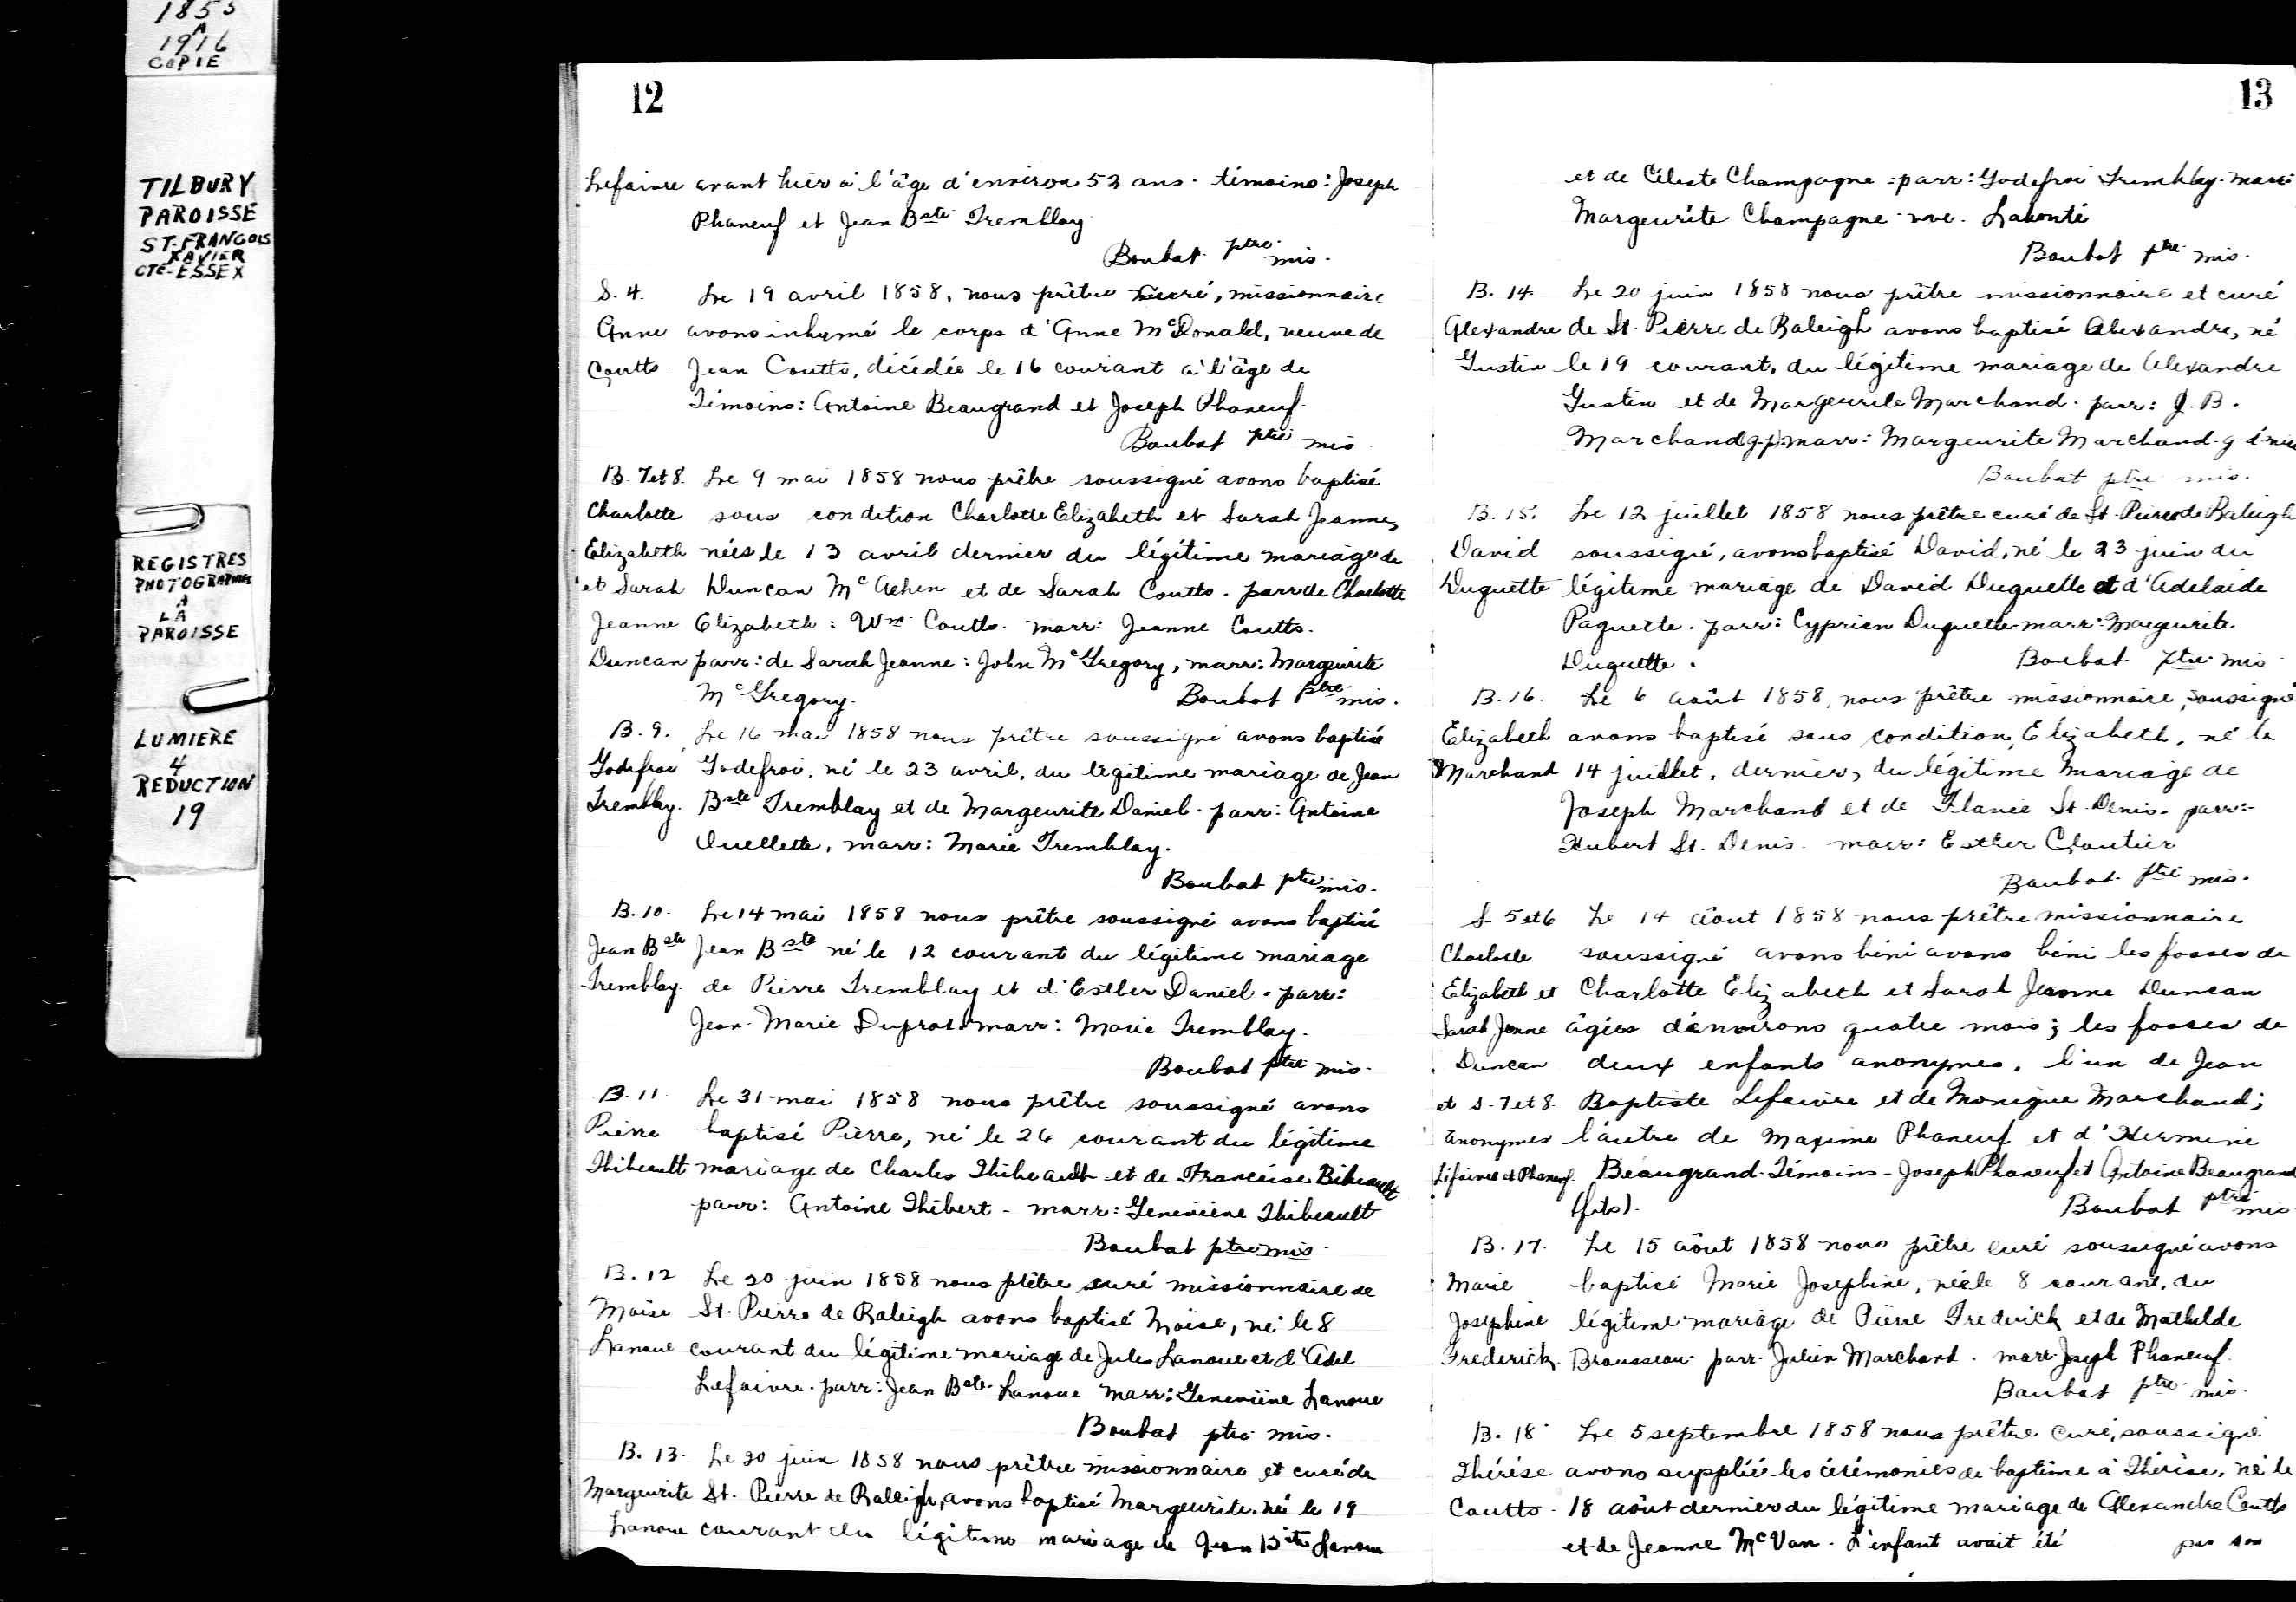 1855
A
1916
COPIE
TILBURY
PAROISSE
ST-FRANCOIS
XAVIER
CTE-ESSEX
REGISTRES
PHOTOGRAPHIES
A
LA
PAROISSE
LUMIERE
4
REDUCTION
19
12
Lefaivre avant hier à l'âge d'environ 52 ans. témoins: Joseph
Phaneuf et Jean Bste Tremblay
Boubat ptre mis.
S. 4. Le 19 avril 1858, nous prêtre curé, missionnaire
Anne avons inhumé le corps d'Anne McDonald, veuve de
Coutts. Jean Coutts, décédée le 16 courant à l'âge de
Témoins: Antoine Beaugrand et Joseph Phaneuf.
Boubat ptre mis.
B. 7 et 8. Le 9 mai 1858 nous prêtre soussigné avons baptisé
Charlotte sous condition Charlotte Elizabeth et Sarah Jeanne,
Elizabeth nées le 13 avril dernier du légitime mariage de
et Sarah Duncan Mc Aehen et de Sarah Coutts. parr de Charlotte
Jeanne Elizabeth: Wm Coutts. marr: Jeanne Coutts.
Duncan parr: de Sarah Jeanne: John McGregory, marr: Margeurite
McGregory. Boubat ptre mis.
B. 9. Le 16 mai 1858 nous prêtre soussigné avons baptisé
Godefroi Godefroi, né le 23 avril, du légitime mariage de Jean
Tremblay. Bste Tremblay et de Margeurite Daniel. parr: Antoine
Ouellette, marr: Marie Tremblay.
Boubat ptre mis.
B. 10. Le 14 mai 1858 nous prêtre soussigné avons baptisé
Jean Bste Jean Bste né le 12 courant du légitime mariage
Tremblay. de Pierre Tremblay et d'Esther Daniel. parr:
Jean-Marie Duprat. marr: Marie Tremblay.
Boubat ptre mis.
B. 11 Le 31 mai 1858 nous prêtre soussigné avons
Pierre baptisé Pierre, né le 26 courant du légitime
Thibeault mariage de Charles Thibeault et de Francoise Bibeault
parr: Antoine Thibert - marr: Geneviève Thibeault
Boubat ptre mis.
B. 12 Le 20 juin 1858 nous prêtre curé missionnaire de
Moïse St. Pierre de Raleigh avons baptisé Moïse, né le 8
Lanoue courant du légitime mariage de Jules Lanoue et d'Adel
Lefaivre. parr: Jean Bste. Lanoue marr: Geneviève Lanoue
Boubat ptre mis.
B. 13. Le 20 juin 1858 nous prêtre missionnaire et curé de
Margeurite St. Pierre de Raleigh, avons baptisé Margeurite, né le 19
Lanoue courant du légitime mariage de Jean Bste Lanoue
13
et de Céleste Champagne - parr: Godefroi Tremblay. marr:
Margeurite Champagne - vve. Labonté
Boubat ptre mis.
B. 14. Le 20 juin 1858 nous prêtre missionnaire et curé
Alexandre de St. Pierre de Raleigh avons baptisé Alexandre, né
Gustin le 19 courant, du légitime mariage de Alexandre
Gustin et de Margeurite Marchand. parr: J. B.
Marchand (g.p.) marr: Margeurite Marchand
Boubat ptre mis.
B. 15. Le 12 juillet 1858 nous prêtre curé de St. Pierre de Raleigh
David soussigné, avons baptisé David, né le 23 juin du
Duguette légitime mariage de David Duguette et d'Adelaide
Paquette. parr: Cyprien Duguette marr: Margeurite
Duguette. Boubat ptre mis
B. 16. Le 6 août 1858, nous prêtre missionnaire, soussigné
Elizabeth avons baptisé sous condition, Elizabeth, né le
Marchand 14 juillet, dernier, du légitime mariage de
Joseph Marchand et de Flavie St. Denis. parr:
Hubert St. Denis. marr: Esther Cloutier
Boubat ptre mis.
S. 5 et 6 Le 14 août 1858 nous prêtre missionnaire
Charlotte soussigné avons béni avons béni les fosses de
Elizabeth et Charlotte Elizabeth et Sarah Jeanne Duncan
Sarah Jeanne âgées d'environs quatre mois; les fosses de
Duncan deux enfants anonymes, l'un de Jean
et S. 7 et 8. Baptiste Lefaivre et de Monique Marchand;
anonymes l'autre de Maxime Phaneuf et d'Hermine
Lefaivre et Phaneuf. Beaugrand - Témoins - Joseph Phaneuf et Antoine Beaugrand
(fils). Boubat ptre mis
B. 17. Le 15 août 1858 nous prêtre curé soussigné avons
Marie baptisé Marie Josephine, née le 8 courant, du
Josephine légitime mariage de Pierre Frederick et de Mathilde
Frederick. Brousseau. parr. Julien Marchand. marr. Joseph Phaneuf.
Boubat ptre mis.
B. 18 Le 5 septembre 1858 nous prêtre curé, soussigné
Thérèse avons suppléé les cérémonies de baptême à Thérèse, né le
Coutts. 18 août dernier du légitime mariage de Alexandre Coutts
et de Jeanne McVan. L'enfant avait été